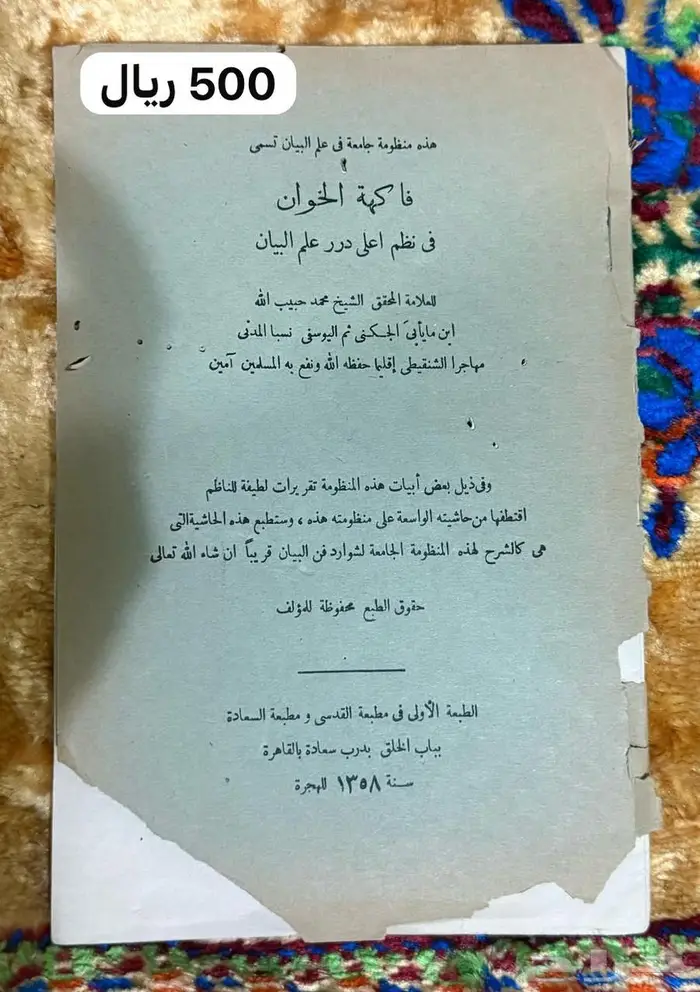 500 ريال
هذه منظومة جامعة فى علم البيان تسمى
فاكهة الخوان
فى نظم اعلى درر علم البيان
للعلامة المحقق الشيخ محمد حبيب الله
ابن مايأبىَ الجكنى ثم اليوسفى نسبا المدنى
مهاجرا الشنقيطى إقليما حفظه الله ونفع به المسلمين آمين
وفى ذيل بعض أبيات هذه المنظومة تقريرات لطيفة للناظم
اقتطفها من حاشيته الواسعة على منظومته هذه ، وستطبع هذه الحاشية التى
هى كالشرح لهذه المنظومة الجامعة لشوارد فن البيان قريباً ان شاء الله تعالى
حقوق الطبع محفوظة للمؤلف
الطبعة الأولى فى مطبعة القدسى و مطبعة السعادة
بباب الخلق بدرب سعادة بالقاهرة
سنة ١٣٥٨ للهجرة